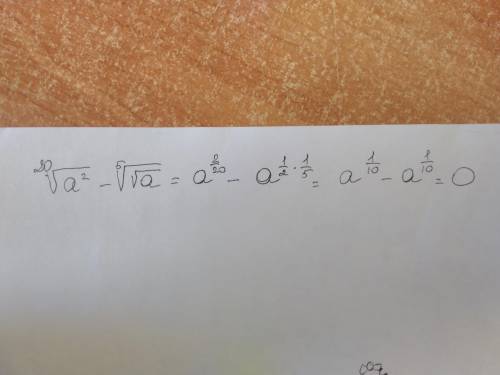 ²⁰√a² - ⁵√√a = a^(2/20) - a^(1/2 · 1/5) = a^(1/10) - a^(1/10) = 0